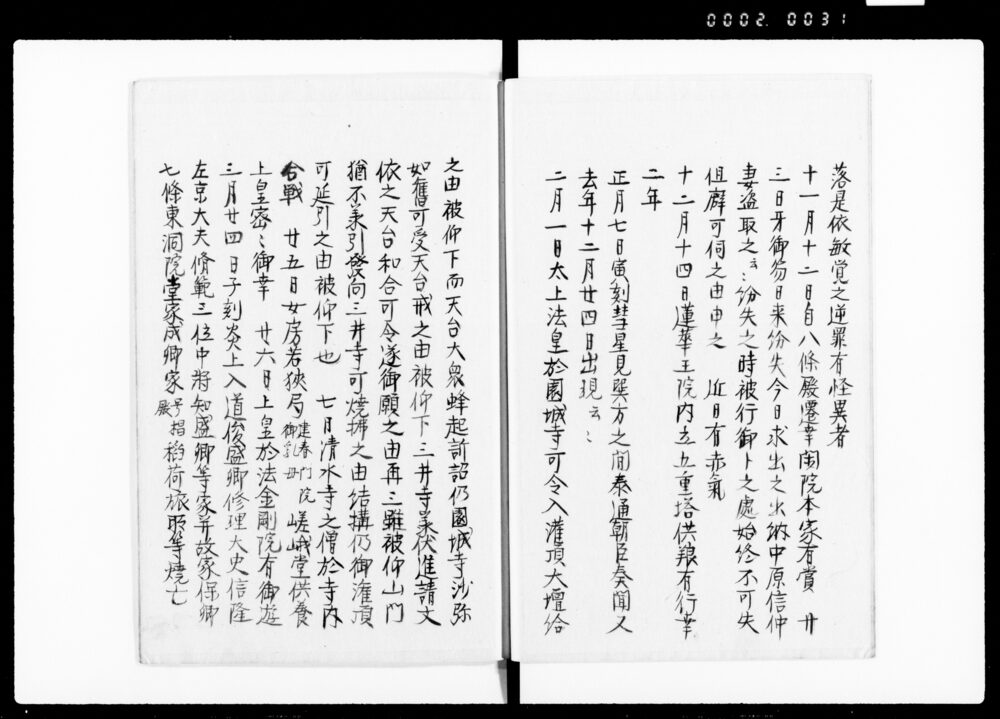 0002.0031
落是依敏覚之逆罪有怪異者
十一月十二日自八條殿遷幸閑院本家有賞 廿
三日牙御笏日来紛失今日求出之出納中原信仲
妻盗取之云〻紛失之時被行御卜之處始終不可失
但聊可伺之由申之 近日有赤氣
十二月十四日蓮華王院内立五重塔供養有行幸
二年
正月七日寅刻彗星見巽方之間泰通朝臣奏聞又
去年十二月廿四日出現云〻
二月一日太上法皇於園城寺可令入灌頂大壇給
之由被仰下而天台大衆蜂起訴詔仍園城寺沙弥
如舊可受天台戒之由被仰下三井寺承伏進請文
依之天台和合可令遂御願之由再三雖被仰山門
猶不承引發向三井寺可焼拂之由結構仍御灌頂
可延引之由被仰下也 七日清水寺之僧於寺内
合戦 廿五日女房若狹局建春門院御乳母嵯峨堂供養
上皇密〻御幸 廿六日上皇於法金剛院有御遊
三月廿四日子刻炎上入道俊盛卿修理大史信隆
左京大夫脩範三位中将知盛卿等家并故家保卿
七條東洞院堂家成卿家号招殿稻荷旅所等燒亡